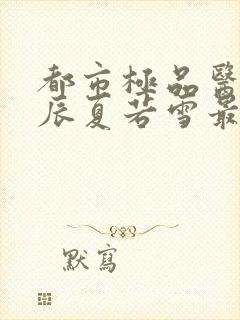 都市極品醫
辰夏若雪最
默寫